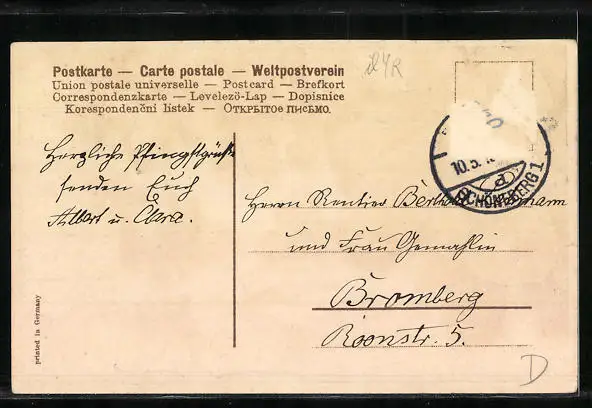 Postkarte — Carte postale — Weltpostverein
Union postale universelle — Postcard — Brefkort
Correspondenzkarte — Levelező-Lap — Dopisnice
Korespondenční listek — Открытое письмо.
Herzliche Pfingstgrüße
senden Euch
Albert u. Clara.
10.5.
a
SCHÖNEBERG 1
Herrn Rentier
und Frau Gemahlin
Bromberg
Roonstr. 5.
printed in Germany
D